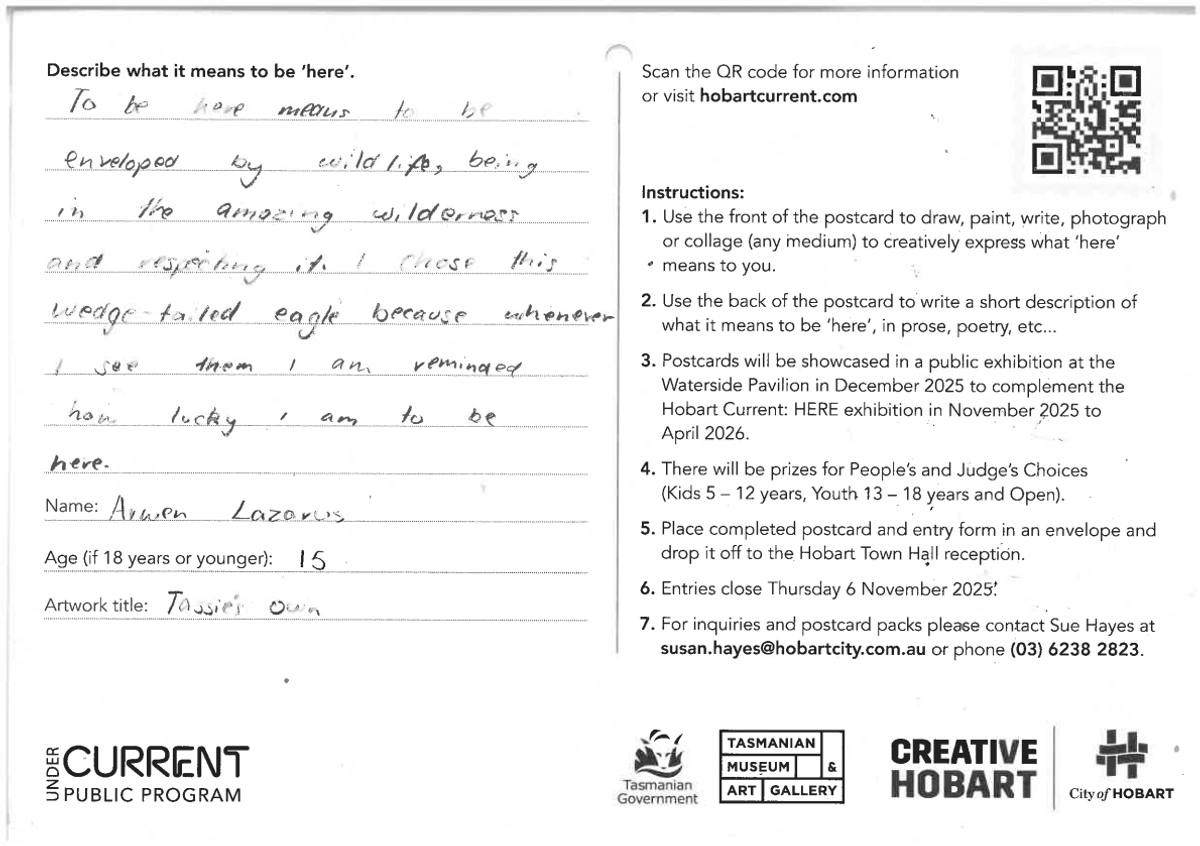 Describe what it means to be 'here'.
To be here means to be
enveloped by wildlife, being
in the amazing wilderness
and respecting it. I chose this
wedge-tailed eagle because whenever
I see them I am reminded
how lucky I am to be
here.
Name: Arwen Lazarus
Age (if 18 years or younger): 15
Artwork title: Tassie's Own
UNDER CURRENT
PUBLIC PROGRAM
Scan the QR code for more information
or visit hobartcurrent.com
Instructions:
1. Use the front of the postcard to draw, paint, write, photograph
or collage (any medium) to creatively express what 'here'
means to you.
2. Use the back of the postcard to write a short description of
what it means to be 'here', in prose, poetry, etc...
3. Postcards will be showcased in a public exhibition at the
Waterside Pavilion in December 2025 to complement the
Hobart Current: HERE exhibition in November 2025 to
April 2026.
4. There will be prizes for People's and Judge's Choices
(Kids 5 – 12 years, Youth 13 – 18 years and Open).
5. Place completed postcard and entry form in an envelope and
drop it off to the Hobart Town Hall reception.
6. Entries close Thursday 6 November 2025.
7. For inquiries and postcard packs please contact Sue Hayes at
susan.hayes@hobartcity.com.au or phone (03) 6238 2823.
Tasmanian
Government
TASMANIAN
MUSEUM &
ART GALLERY
CREATIVE
HOBART
City of HOBART